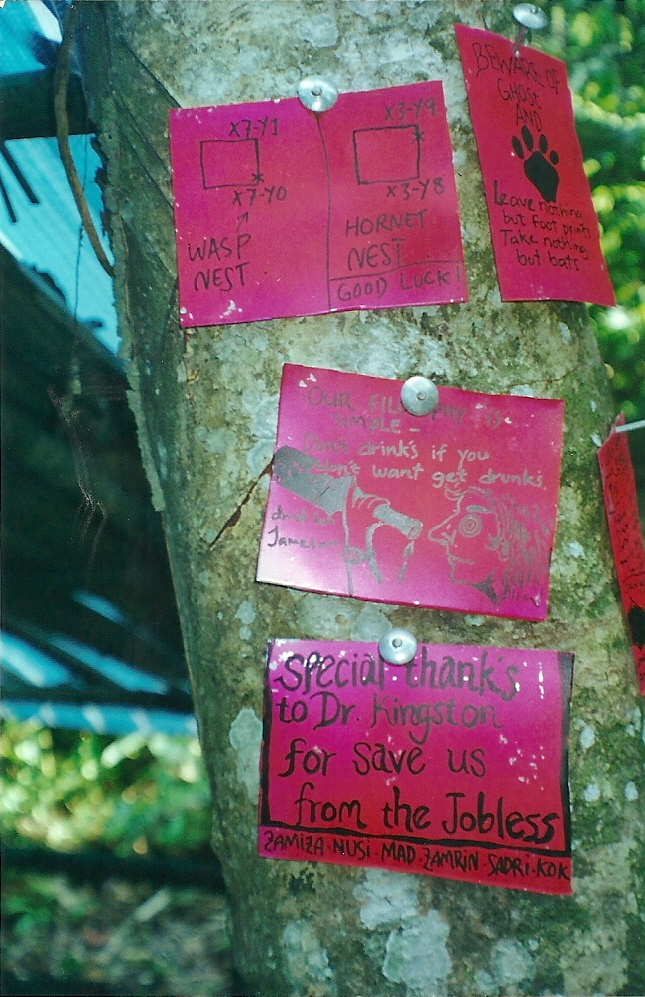 X7-Y1
X7-Y0
WASP
NEST
X3-Y9
X3-Y8
HORNET
NEST
GOOD LUCK!
BEWARE OF
GHOST
AND
Leave nothing
but foot prints,
Take nothing
but bats
OUR
SIMPLE -
Don't drink's if you
don't want get drunk's.
Special thank's
to Dr. Kingston
for save us
from the Jobless
ZAMIZA · NUSI · MAD · ZAMRIN · SADRI · KOK